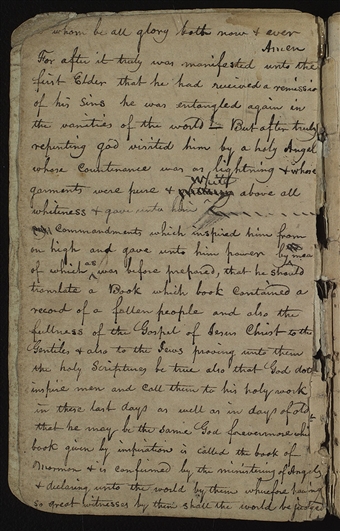 whom be all glory both now & ever
Amen
For after it truly was manifested unto the
first Elder that he had received a remissio
of his sins he was entangled again in
the vanities of the world But after truly
repenting God visited him by a holy Angel
whose countinance was as lightning & whose
garments were pure & White above all
whiteness & gave unto him
Commandments which inspired him from
on high and gave unto him power by mea
of which as was before prepared, that he should
translate a Book which book contained a
record of a fallen people and also the
fullness of the Gospel of Jesus Christ to the
Gentiles & also to the Jews proving unto them
the holy Scriptures be true also that God doth
inspire men and call them to his holy work
in these last days as well as in days of old
that he may be the same God forevermore whi
book given by inspiration is called the book of
Mormon & is confirmed by the ministering of Angels
& declaring unto the world by them wherefore having
so great witnesses by them shall the world be judged